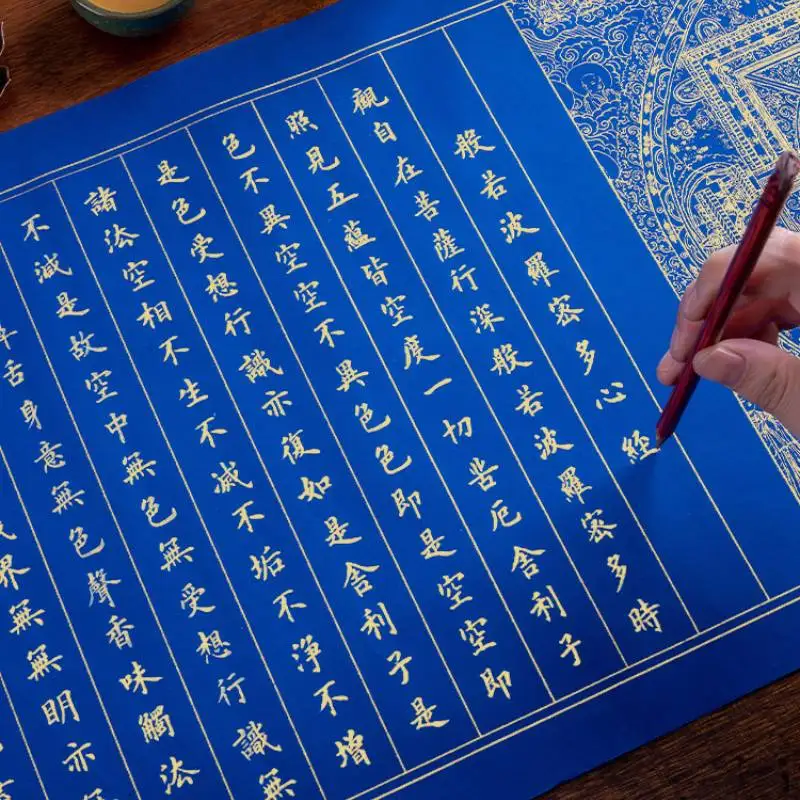 般若波羅密多心經
觀自在菩薩行深般若波羅密多時
照見五蘊皆空度一切苦厄舍利子
色不異空空不異色色即是空空即
是色受想行識亦復如是舍利子是
諸法空相不生不滅不垢不淨不增
不減是故空中無色無受想行識無
舌身意無色聲香味觸法
界無無明亦